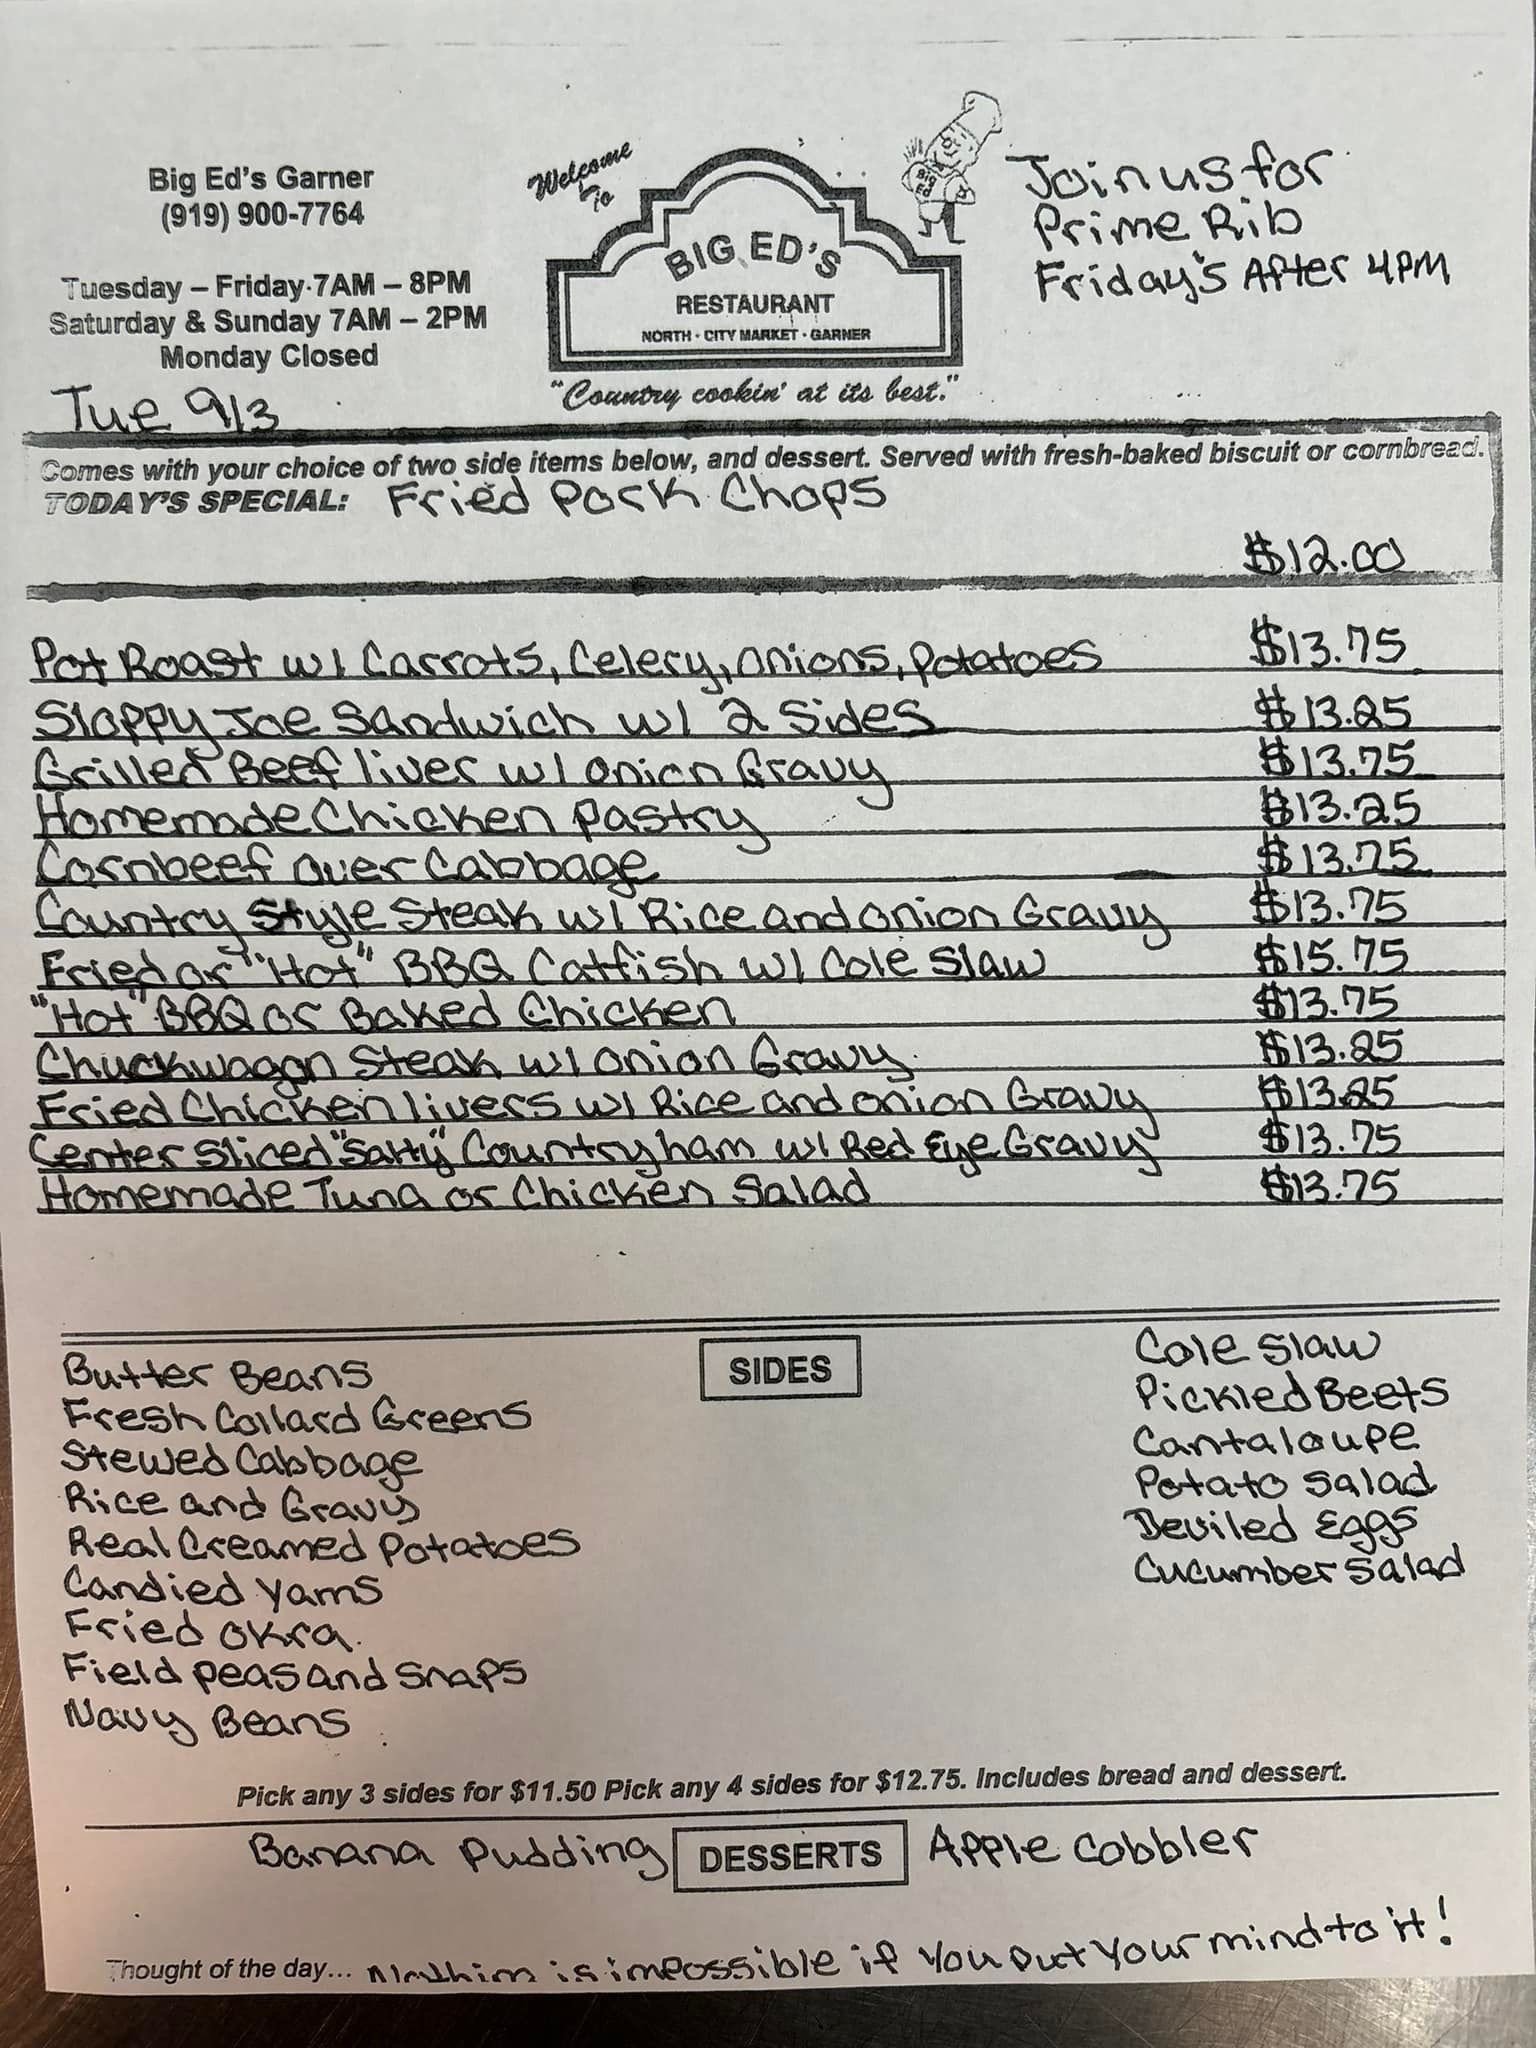 Big Ed's Garner
(919) 900-7764
Tuesday – Friday 7AM – 8PM
Saturday & Sunday 7AM – 2PM
Monday Closed
Tue 9/3
Welcome
To
Big Ed
BIG ED'S
RESTAURANT
NORTH · CITY MARKET · GARNER
"Country cookin' at its best."
Join us for
Prime Rib
Friday's After 4PM
Comes with your choice of two side items below, and dessert. Served with fresh-baked biscuit or cornbread.
TODAY'S SPECIAL: Fried Pork Chops
$12.00
Pot Roast w/ Carrots, Celery, onions, potatoes $13.75
Sloppy Joe Sandwich w/ 2 Sides $13.25
Grilled Beef liver w/ onion Gravy $13.75
Homemade Chicken Pastry $13.25
Cornbeef over Cabbage $13.75
Country Style Steak w/ Rice and onion Gravy $13.75
Fried or "Hot" BBQ Catfish w/ Cole Slaw $15.75
"Hot" BBQ or Baked Chicken $13.75
Chuckwagon Steak w/ onion Gravy $13.25
Fried Chicken livers w/ Rice and onion Gravy $13.25
Center Sliced "Salty" Country ham w/ Red Eye Gravy $13.75
Homemade Tuna or Chicken Salad $13.75
SIDES
Butter Beans
Fresh Collard Greens
Stewed Cabbage
Rice and Gravy
Real Creamed Potatoes
Candied Yams
Fried okra
Field peas and snaps
Navy Beans
Cole Slaw
Pickled Beets
Cantaloupe
Potato Salad
Deviled Eggs
Cucumber Salad
Pick any 3 sides for $11.50 Pick any 4 sides for $12.75. Includes bread and dessert.
Banana Pudding DESSERTS Apple Cobbler
Thought of the day... Nothing is impossible if you put your mind to it!